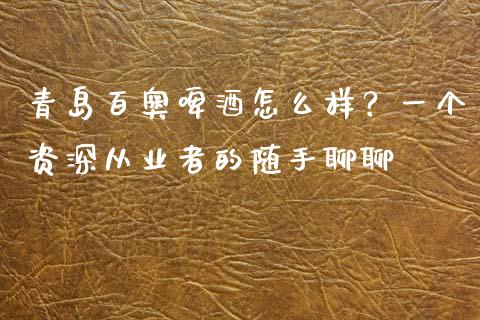 青岛百奥啤酒怎么样？一个
资深从业者的随手聊聊